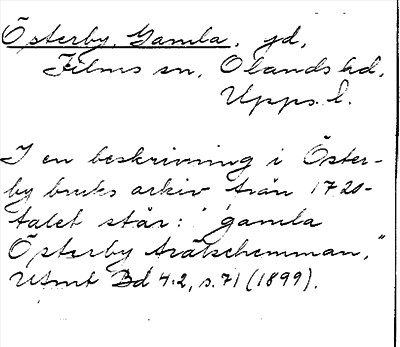 Österby, Gamla, jd,
Films sn, Olands hd,
Upps. l.
I en beskrivning i Öster-
by bruks arkiv från 1720-
talet står: "gamla
Österby trätschemman,"
UFmt Bd 4.2, s. 71 (1899).